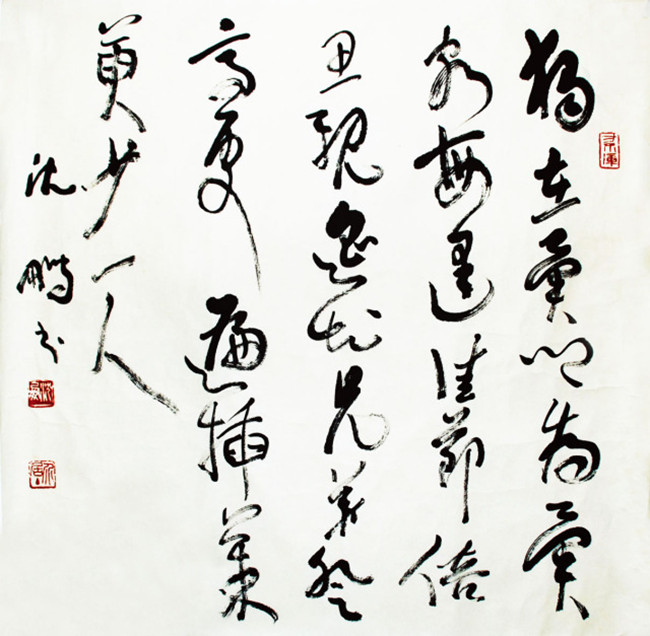 獨在異鄉為異
客每逢佳節倍
思親遙知兄弟登
高處遍插茱
萸少一人
沈鵬書